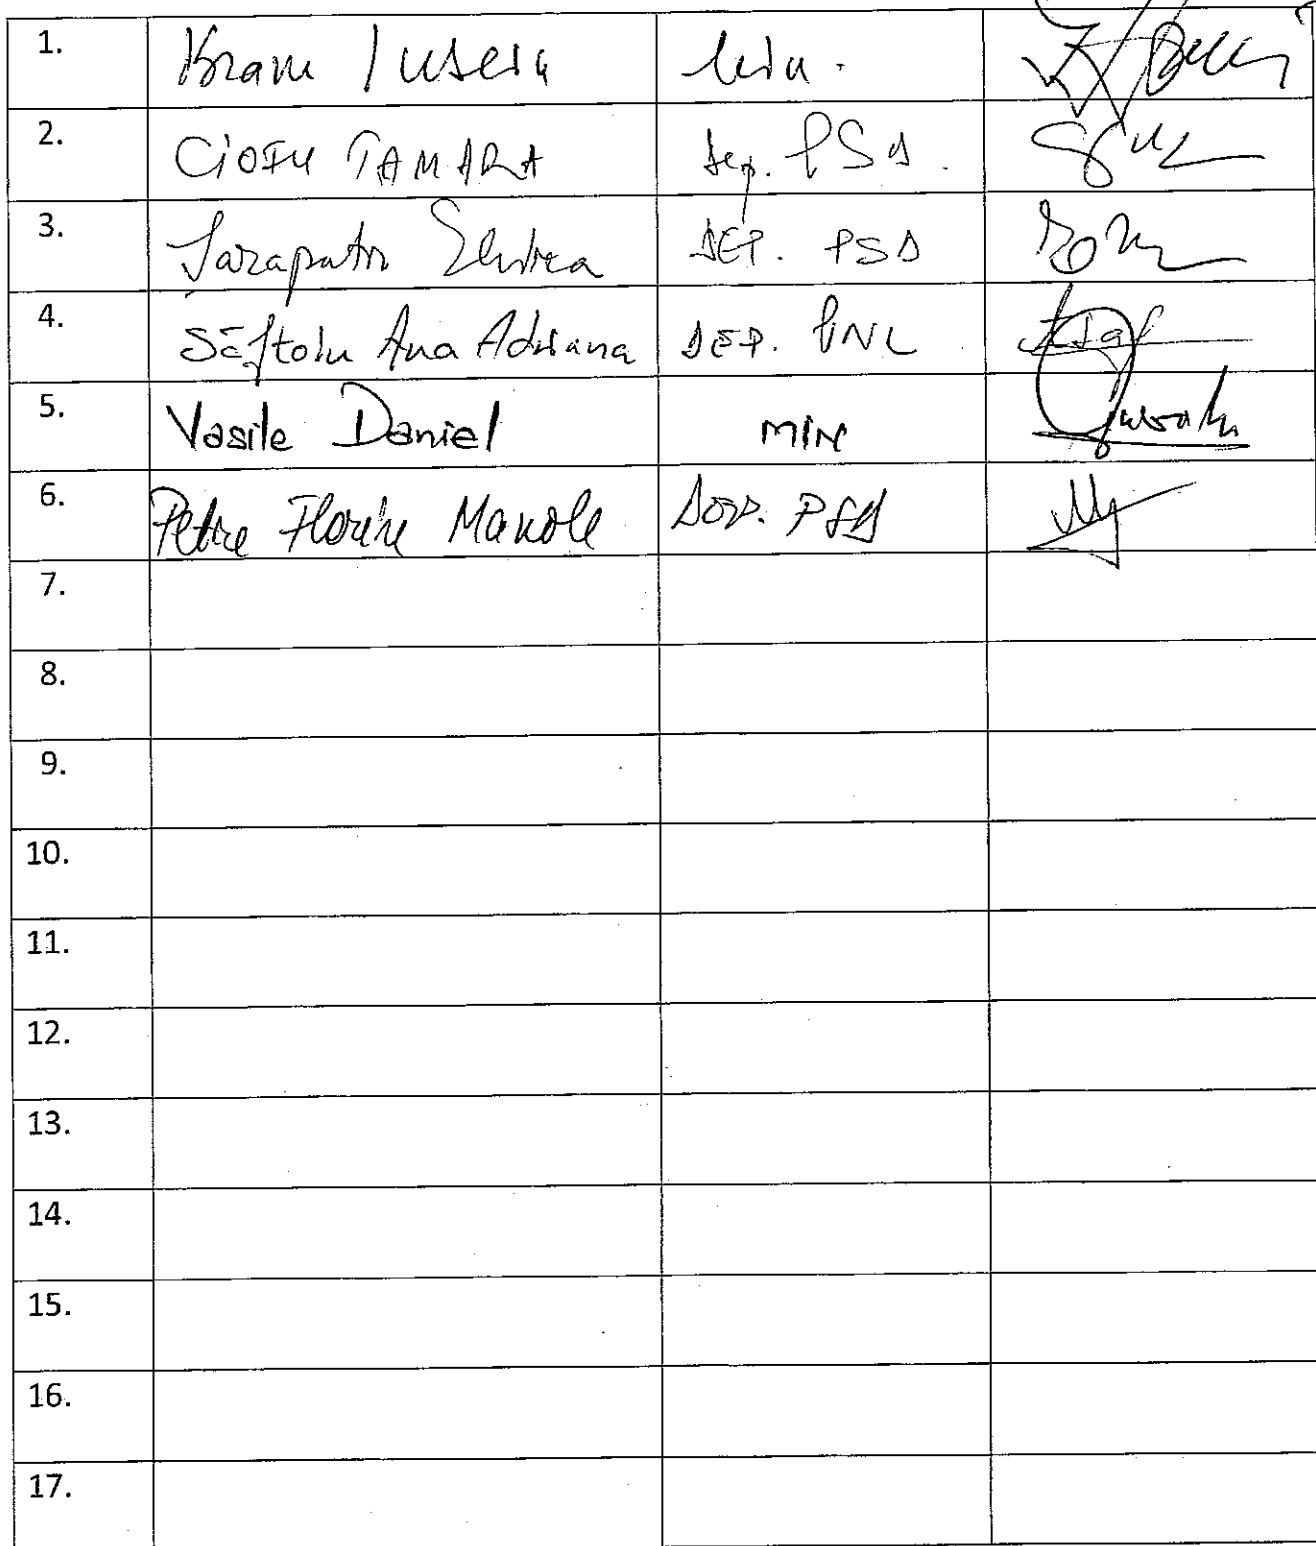 1. Ibram Iusein min.
2. CIOFU TAMARA Dep. PSD.
3. Șarapatin Elvira DEP. PSD
4. Săftoiu Ana Adriana DEP. PNL
5. Vasile Daniel MIN
6. Petre Florin Manole PSD
7.
8.
9.
10.
11.
12.
13.
14.
15.
16.
17.